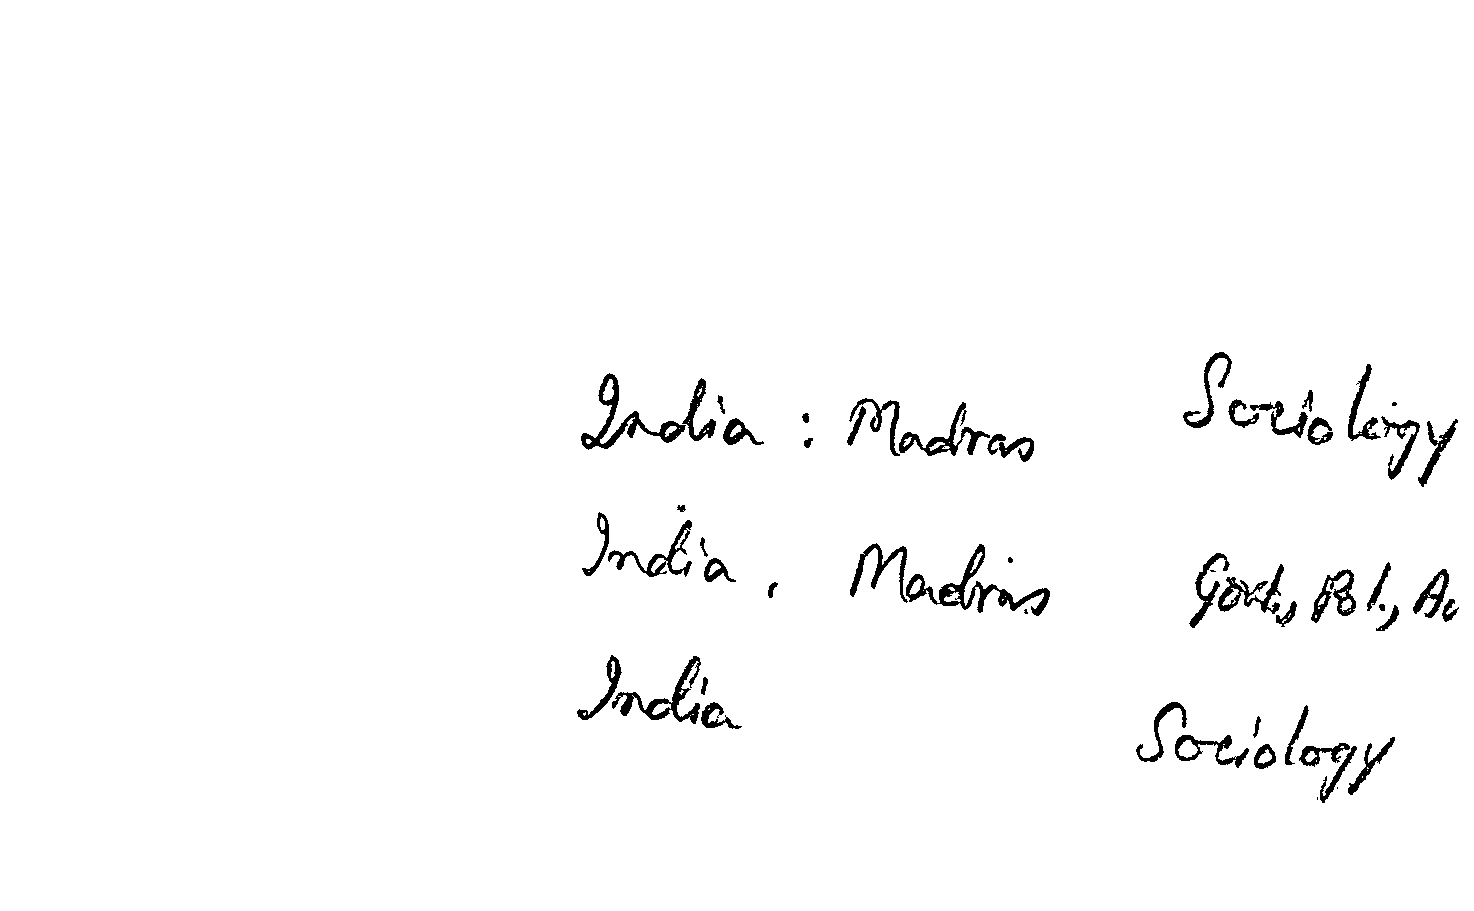 India : Madras Sociology
India, Madras Govt., Pol.,
India Sociology